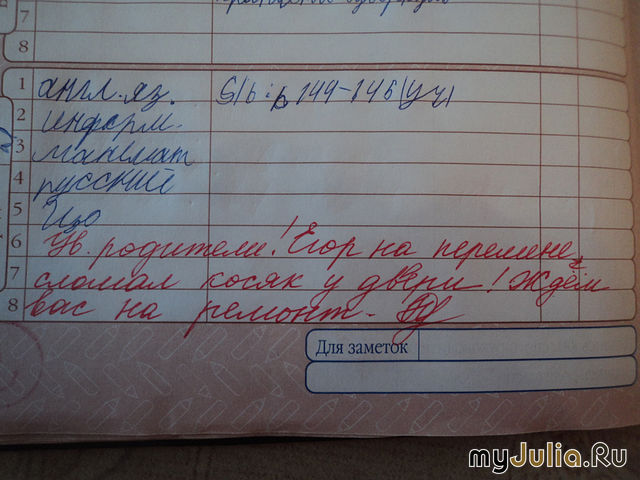 7
8
1 англ. яз. S/b: p 144-146 (уч)
2 информ.
3 математ
4 русский
5 Изо
6 Ув. родители! Егор на перемене
7 сломал косяк у двери! Ждём
8 вас на ремонт.
Для заметок
myJulia.Ru